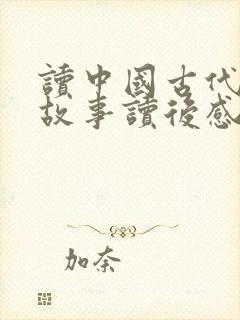 讀中國古代
故事讀後感
加奈